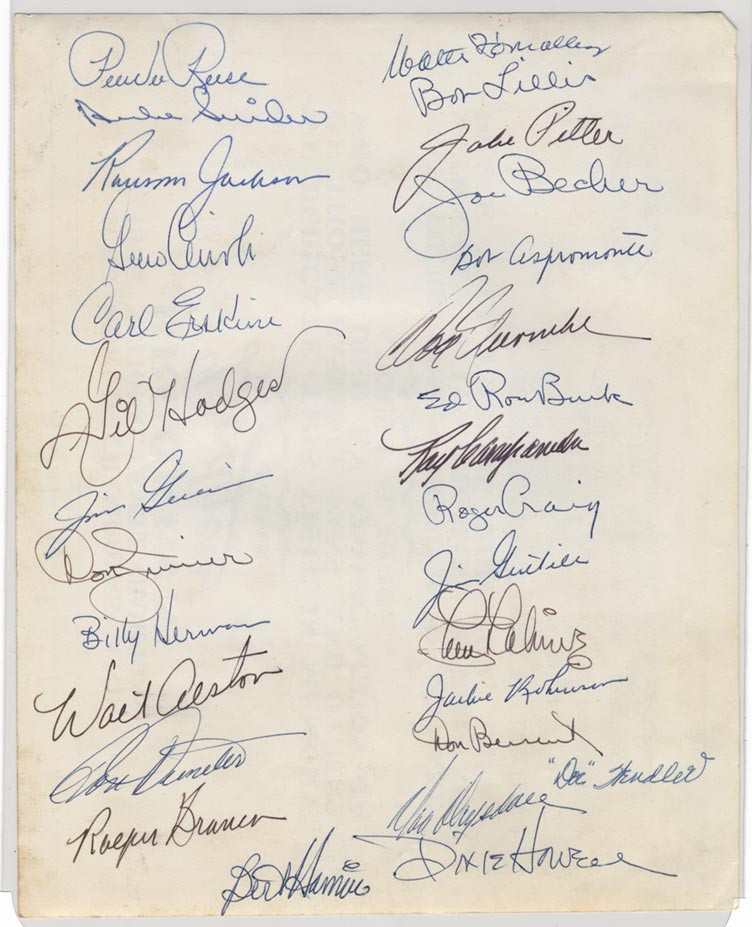 Pee Wee Reese
Duke Snider
Ransom Jackson
Gino Cimoli
Carl Erskine
Gil Hodges
Jim Gilliam
Don Zimmer
Billy Herman
Walt Alston
Ralph Branca
Walter O'Malley
Bob Lillis
Jake Pitler
Joe Becker
Bob Aspromonte
Don Newcombe
Ed Roebuck
Roy Campanella
Roger Craig
Jim Gentile
Jackie Robinson
Don Bessent
"Doc" Wendler
Don Drysdale
Dixie Howell
Bert Hamric